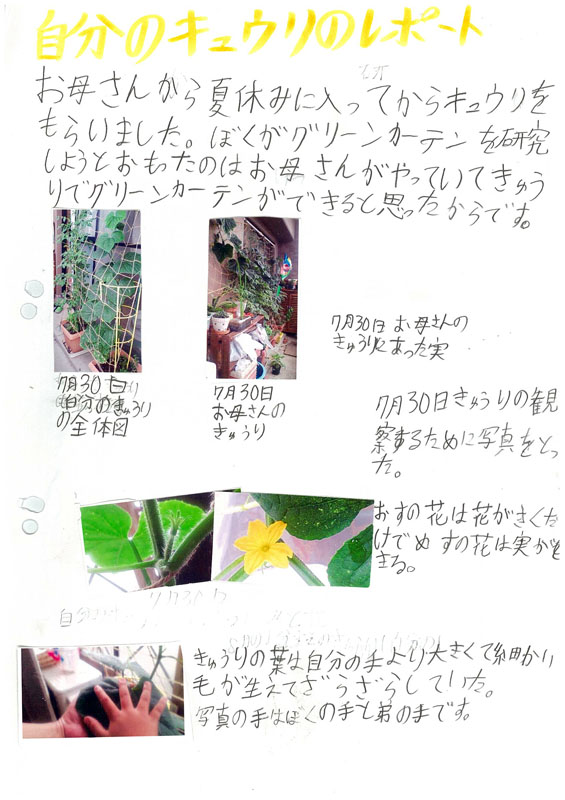 自分のキュウリのレポート
お母さんから夏休みに入ってからキュウリを
もらいました。ぼくがグリーンカーテンを研究
しようとおもったのはお母さんがやっていてきゅう
りでグリーンカーテンができると思ったからです。
7月30日 お母さんの
きゅうりにあった実
7月30日
自分のきゅうり
の全体図
7月30日
お母さんの
きゅうり
7月30日きゅうりの観
察するために写真をとっ
た。
おすの花は花がさくだ
けでめすの花は実がで
きる。
きゅうりの葉は自分の手より大きくて細かい
毛が生えてざらざらしていた。
写真の手はぼくの手と弟の手です。